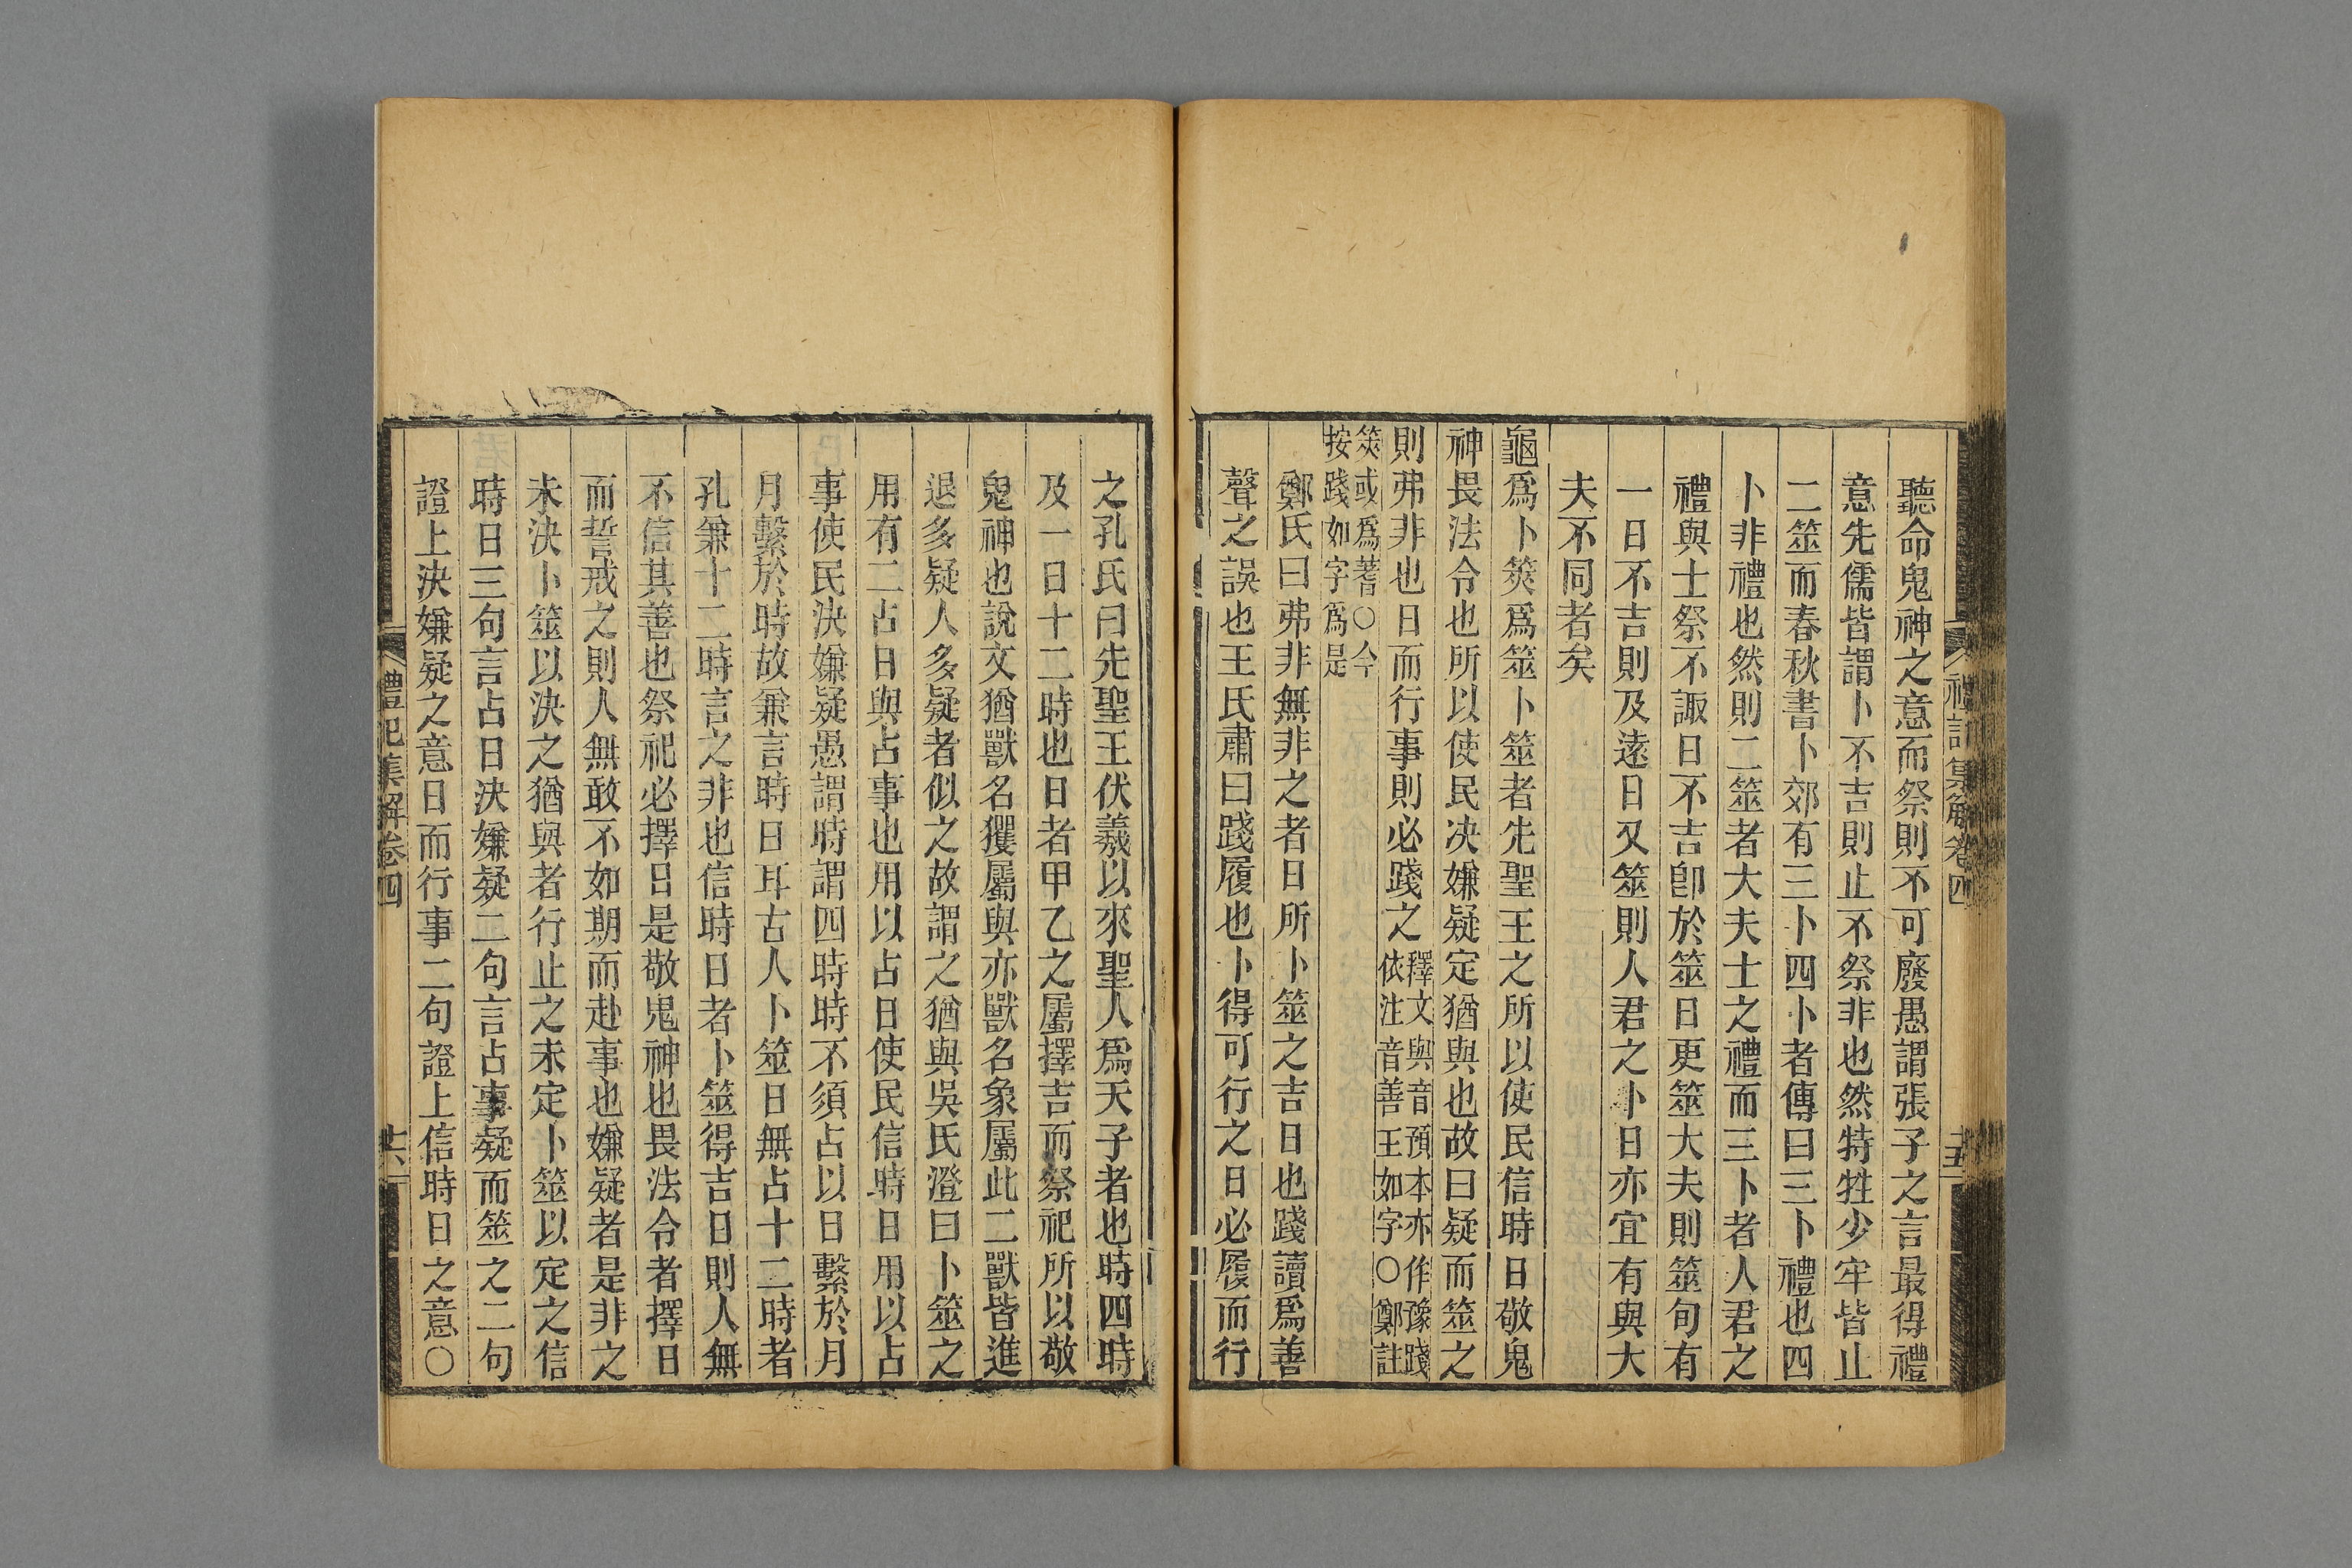 禮記集解卷四
聽命鬼神之意而祭則不可廢愚謂張子之言最得禮
意先儒皆謂卜不吉則止不祭非也然特牲少牢皆止
二筮而春秋書卜郊有三卜四卜者傳曰三卜禮也四
卜非禮也然則二筮者大夫士之禮而三卜者人君之
禮與士祭不諏日不吉卽於筮日更筮大夫則筮旬有
一日不吉則及遠日又筮則人君之卜日亦宜有與大
夫不同者矣
龜爲卜筴爲筮卜筮者先聖王之所以使民信時日敬鬼
神畏法令也所以使民决嫌疑定猶與也故曰疑而筮之
則弗非也日而行事則必踐之
釋文與音預本亦作豫踐
依注音善王如字○鄭註
筴或爲蓍○今
按踐如字爲是
鄭氏曰弗非無非之者日所卜筮之吉日也踐讀爲善
聲之誤也王氏肅曰踐履也卜得可行之日必履而行
之孔氏曰先聖王伏羲以來聖人爲天子者也時四時
及一日十二時也日者甲乙之屬擇吉而祭祀所以敬
鬼神也說文猶獸名玃屬與亦獸名象屬此二獸皆進
退多疑人多疑者似之故謂之猶與吳氏澄曰卜筮之
用有二占日與占事也用以占日使民信時日用以占
事使民決嫌疑愚謂時謂四時時不須占以日繫於月
月繫於時故兼言時日耳古人卜筮日無占十二時者
孔兼十二時言之非也信時日者卜筮得吉日則人無
不信其善也祭祀必擇日是敬鬼神也畏法令者擇日
而誓戒之則人無敢不如期而赴事也嫌疑者是非之
未決卜筮以決之猶與者行止之未定卜筮以定之信
時日三句言占日決嫌疑二句言占事疑而筮之二句
證上決嫌疑之意日而行事二句證上信時日之意○
禮記集解卷四